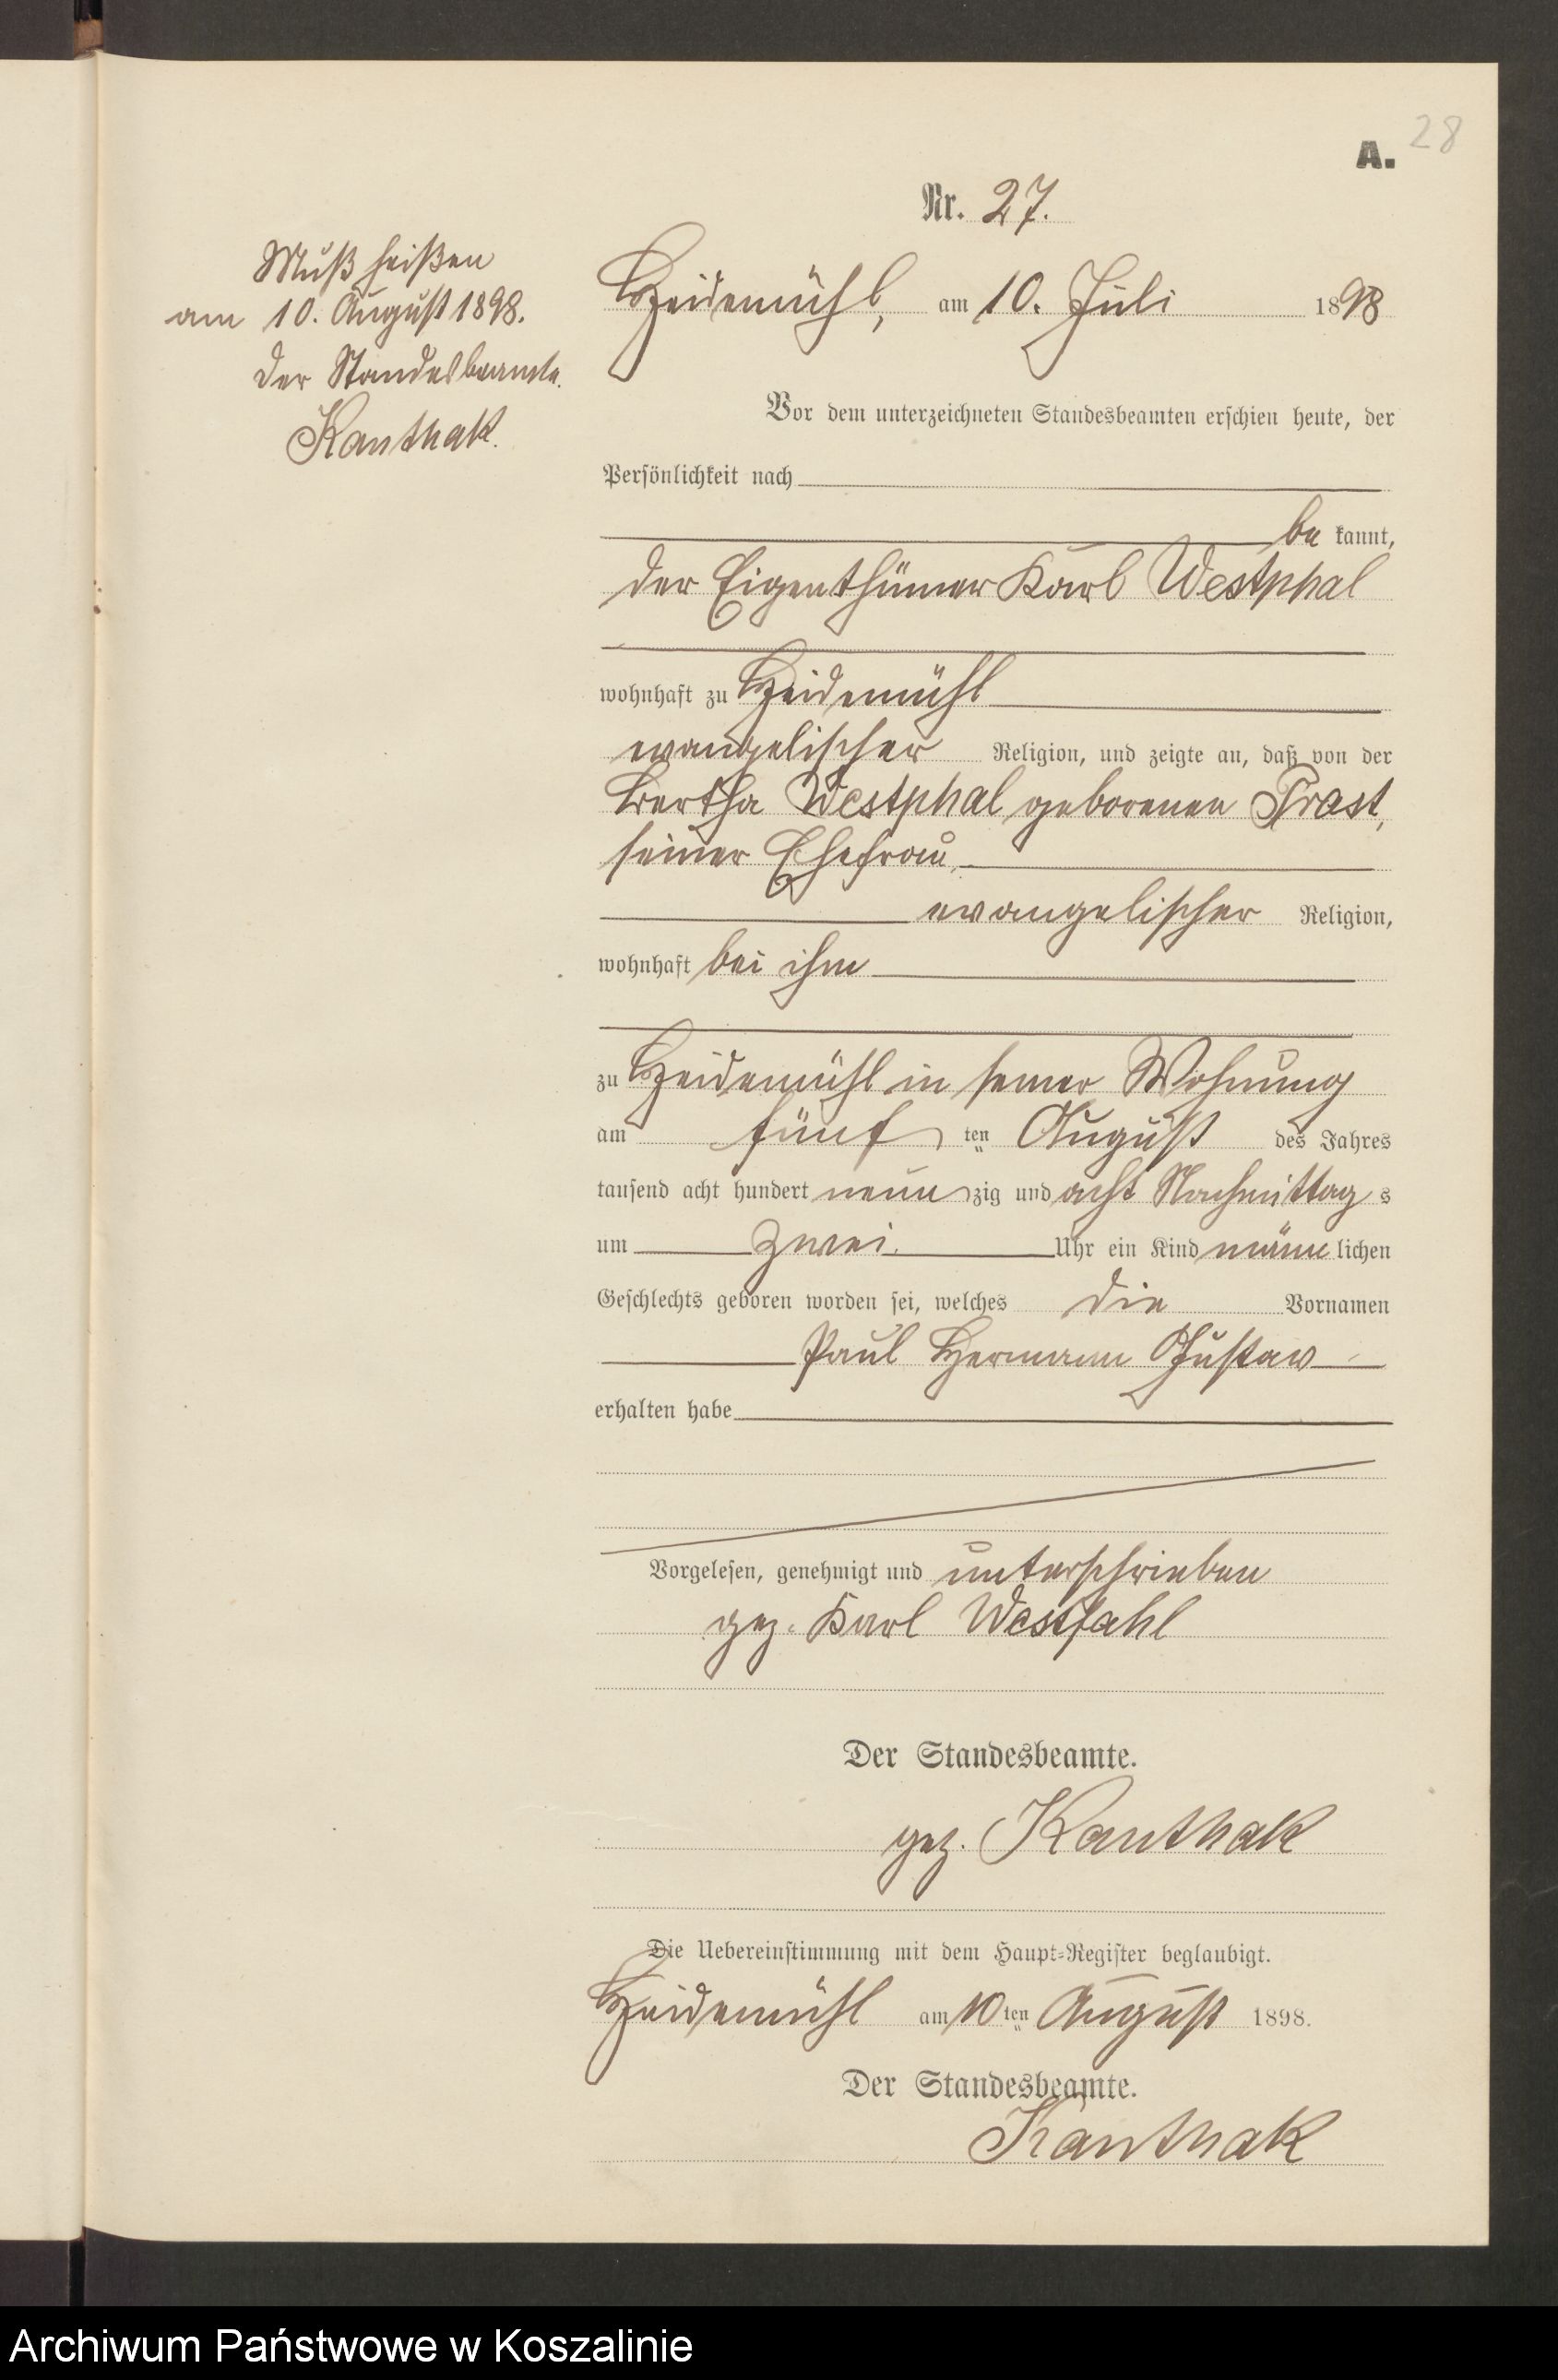 28
A.
Nr. 27.
Muß heißen
am 10. August 1898.
Der Standesbeamte.
Kanthak.
Heidemühl, am 10. Juli 1898
Vor dem unterzeichneten Standesbeamten erschien heute, der
Persönlichkeit nach
be kannt,
der Eigenthümer Karl Westphal
wohnhaft zu Heidemühl
evangelischer Religion, und zeigte an, daß von der
Bertha Westphal geborenen Prast,
seiner Ehefrau,
evangelischer Religion,
wohnhaft bei ihm
zu Heidemühl in seiner Wohnung
am fünf ten August des Jahres
tausend acht hundert neun zig und acht Nachmittag s
um zwei Uhr ein Kind männ lichen
Geschlechts geboren worden sei, welches die Vornamen
Paul Hermann Gustav
erhalten habe
Vorgelesen, genehmigt und unterschrieben
gez. Karl Westfahl
Der Standesbeamte.
gez. Kanthak
Die Uebereinstimmung mit dem Haupt-Register beglaubigt.
Heidemühl am 10 ten August 1898.
Der Standesbeamte.
Kanthak
Archiwum Państwowe w Koszalinie